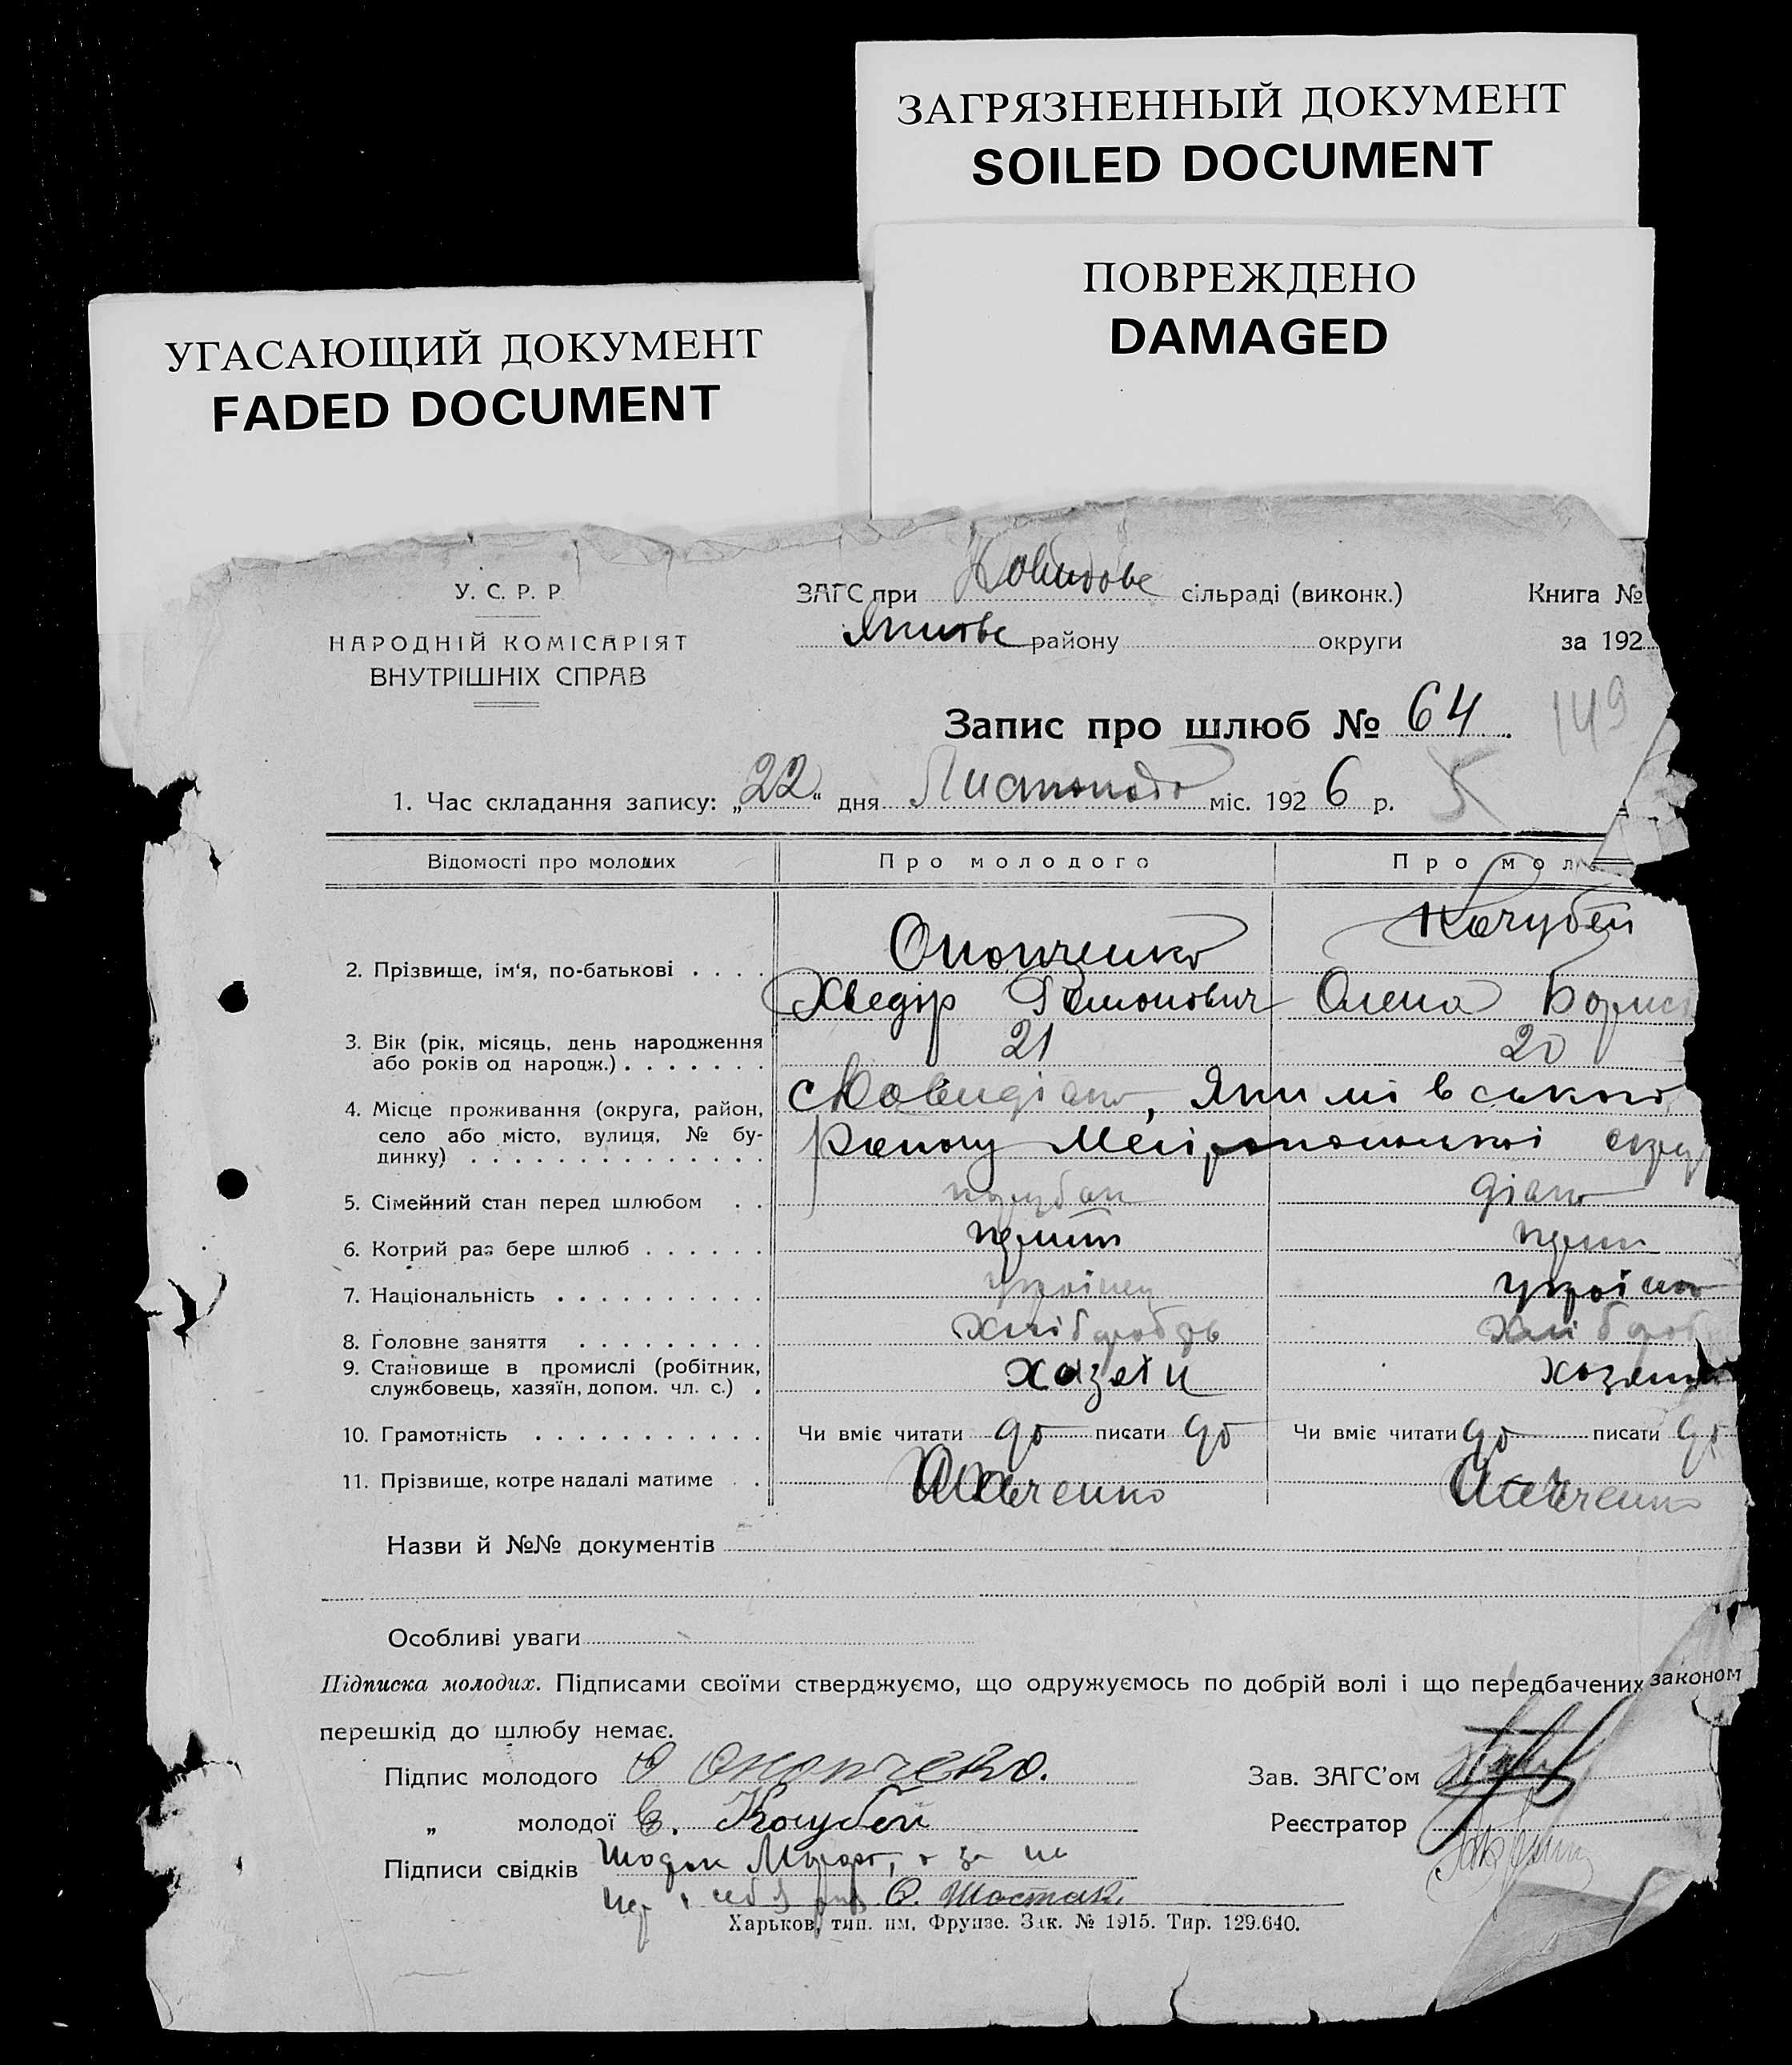 ЗАГРЯЗНЕННЫЙ ДОКУМЕНТ
SOILED DOCUMENT
ПОВРЕЖДЕНО
DAMAGED
УГАСАЮЩИЙ ДОКУМЕНТ
FADED DOCUMENT
У. С. Р. Р.
НАРОДНІЙ КОМІСАРІЯТ
ВНУТРІШНІХ СПРАВ
ЗАГС при сільраді (виконк.)
району округи
Книга №
за 192
149
Запис про шлюб № 64
1. Час складання запису: „22“ дня Листопада міс. 1926 р.
Відомості про молодих Про молодого Про мол
2. Прізвище, ім'я, по-батькові Онопченко Кочубей
Хведір Олена Борис
3. Вік (рік, місяць, день народження або років од народж.) 21 20
4. Місце проживання (округа, район, село або місто, вулиця, № будинку) Якимівського
району Меліропольської окру
5. Сімейний стан перед шлюбом парубок
6. Котрий раз бере шлюб перший перш
7. Національність українец україн
8. Головне заняття хлібороб хлібороб
9. Становище в промислі (робітник, службовець, хазяїн, допом. чл. с.) хазяїн
10. Грамотність Чи вміє читати до писати до Чи вміє читати до писати до
11. Прізвище, котре надалі матиме
Назви й №№ документів
Особливі уваги
Підписка молодих. Підписами своїми стверджуємо, що одружуємось по добрій волі і що передбачених законом
перешкід до шлюбу немає.
Підпис молодого Зав. ЗАГС'ом
„ молодої Є. Кочубей Реєстратор
Підписи свідків
О. Шостак
Харьков, тип. им. Фрунзе. Зак. № 1915. Тир. 129.640.